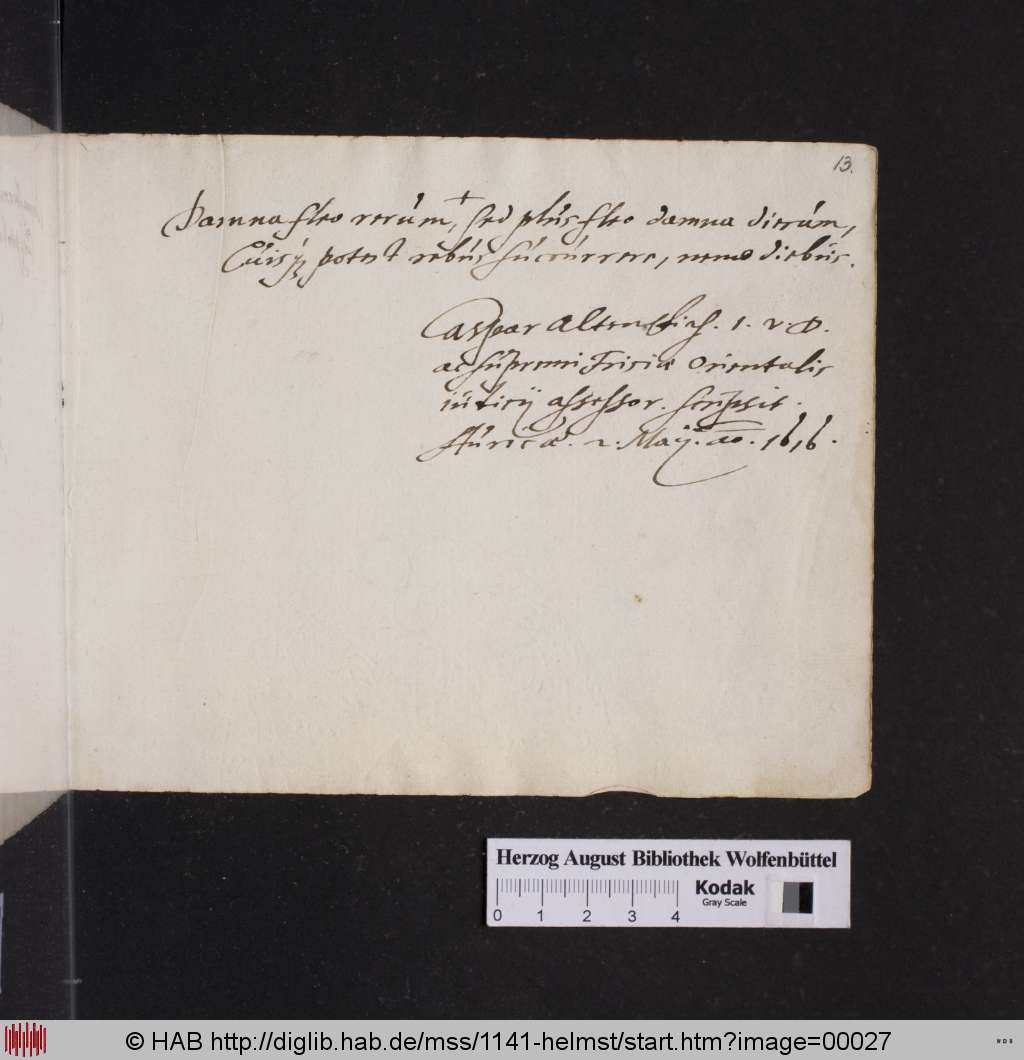 13.
Damna fleo rerum, sed plus fleo damna dierum,
Cuisq potest rebus succurrere, nemo diebus.
Caspar I. V. D.
ac supremi Frisiæ Orientalis
iudicij assessor. scripsit.
Auricæ. 2. Maij. ao. 1616.
Herzog August Bibliothek Wolfenbüttel
Kodak
Gray Scale
0 1 2 3 4
© HAB http://diglib.hab.de/mss/1141-helmst/start.htm?image=00027